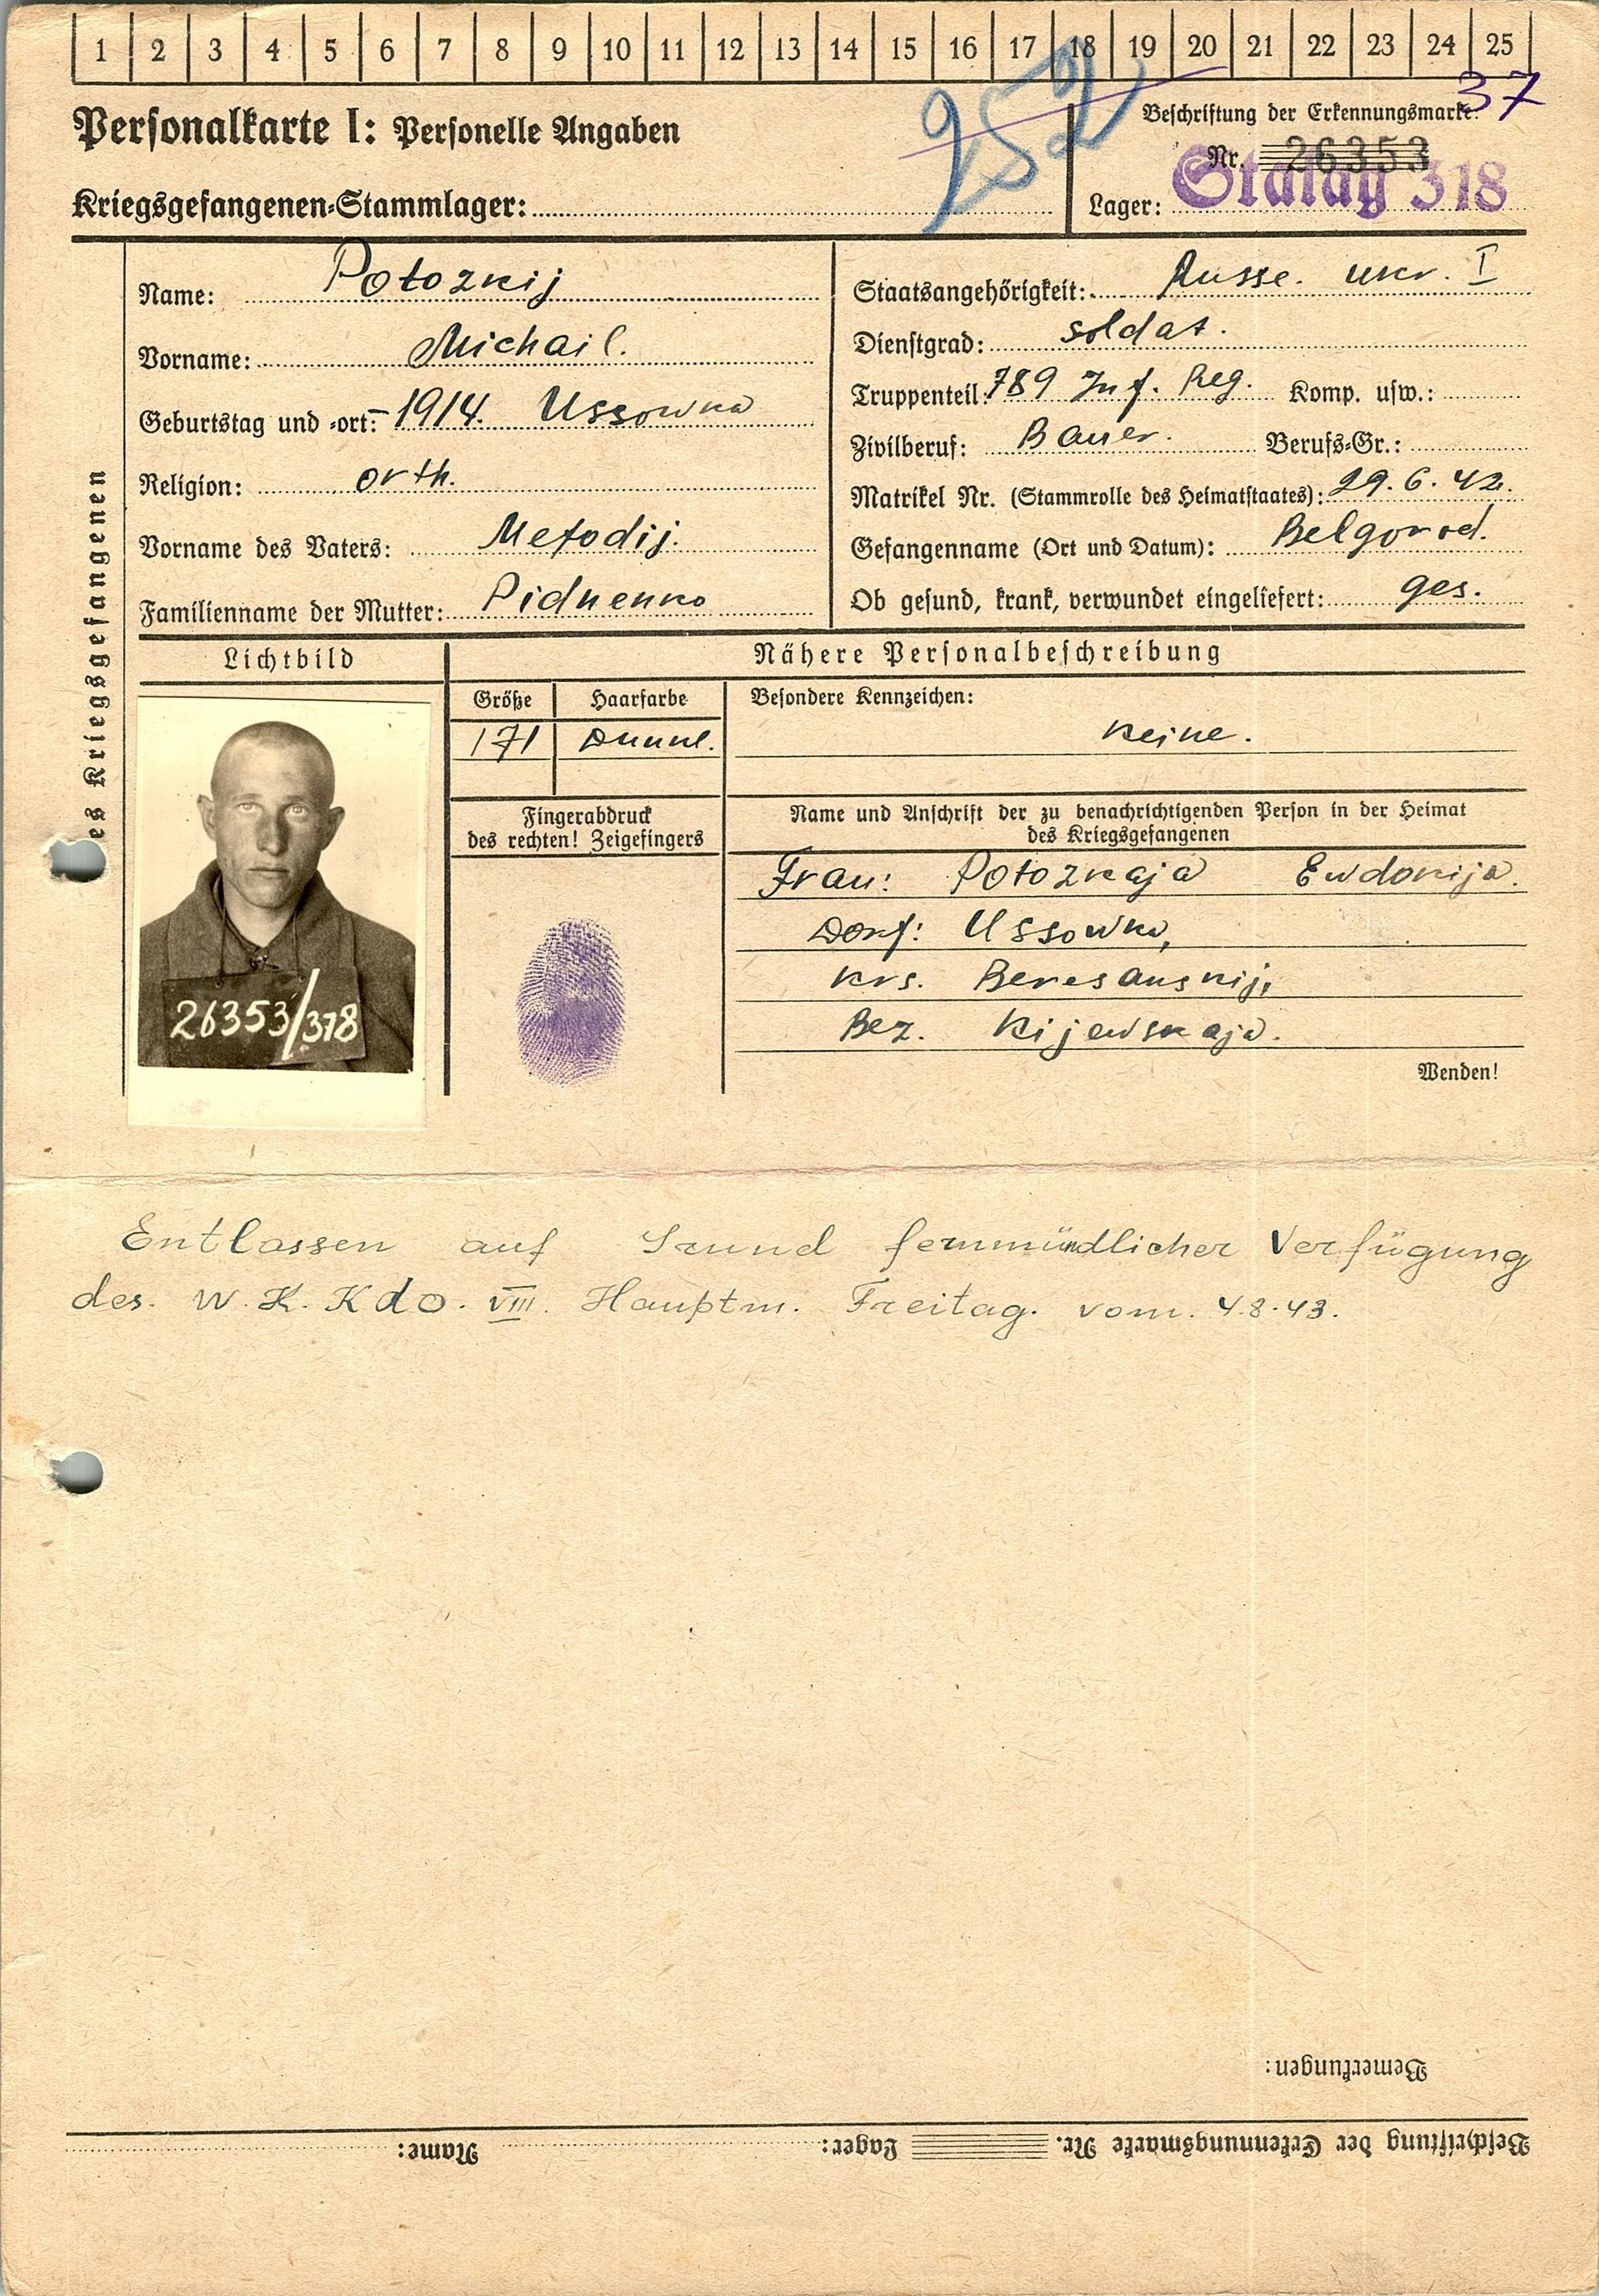 1 2 3 4 5 6 7 8 9 10 11 12 13 14 15 16 17 18 19 20 21 22 23 24 25
252
37
Personalkarte I: Personelle Angaben
Beschriftung der Erkennungsmarke.
Nr. 26353
Kriegsgefangenen-Stammlager:
Lager: Stalag 318
des Kriegsgefangenen
Name: Potozkij
Vorname: Michail.
Geburtstag und -ort: 1914. Ussowka
Religion: orth.
Vorname des Vaters: Mefodij.
Familienname der Mutter: Pidnenko
Staatsangehörigkeit: Russe. ukr. I
Dienstgrad: soldat.
Truppenteil: 789 Inf. Reg. Komp. usw.:
Zivilberuf: Bauer. Berufs-Gr.:
Matrikel Nr. (Stammrolle des Heimatstaates): 29.6.42.
Gefangenname (Ort und Datum): Belgorod.
Ob gesund, krank, verwundet eingeliefert: ges.
Lichtbild
Nähere Personalbeschreibung
Größe Haarfarbe Besondere Kennzeichen:
171 Dunkl. Keine.
26353/318
Fingerabdruck
des rechten! Zeigefingers
Name und Anschrift der zu benachrichtigenden Person in der Heimat
des Kriegsgefangenen
Frau: Potozkaja Ewdokija.
Dorf: Ussowka,
Krs. Beresanskij,
Bez. Kijewskaja.
Wenden!
Entlassen auf Grund fernmündlicher Verfügung
des. W.K.Kdo. VIII. Hauptm. Freitag. vom. 4.8.43.
Bemerkungen:
Beschriftung der Erkennungsmarke Nr. Lager: Name: